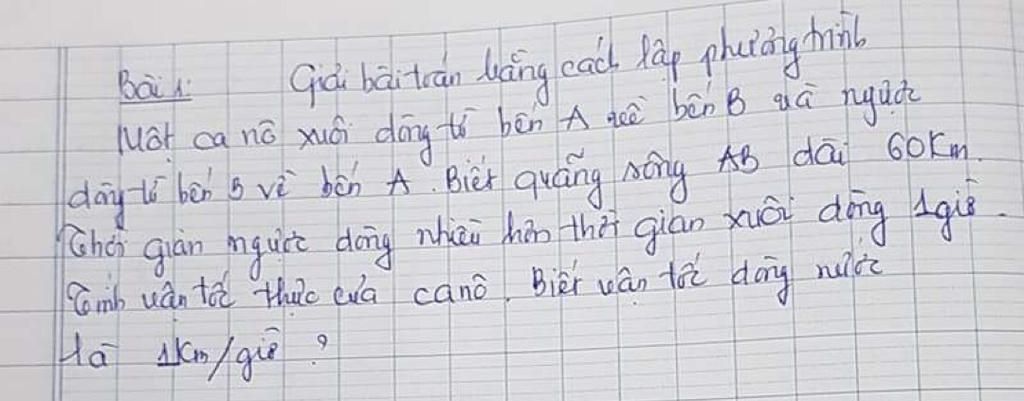 Bài 1: Giải bài toán bằng cách lập phương trình
Một ca nô xuôi dòng từ bến A đến bến B và ngược
dòng từ bến B về bến A. Biết quãng sông AB dài 60Km.
Thời gian ngược dòng nhiều hơn thời gian xuôi dòng 1giờ.
Tính vận tốc thực của canô. Biết vận tốc dòng nước
là 1km/giờ ?